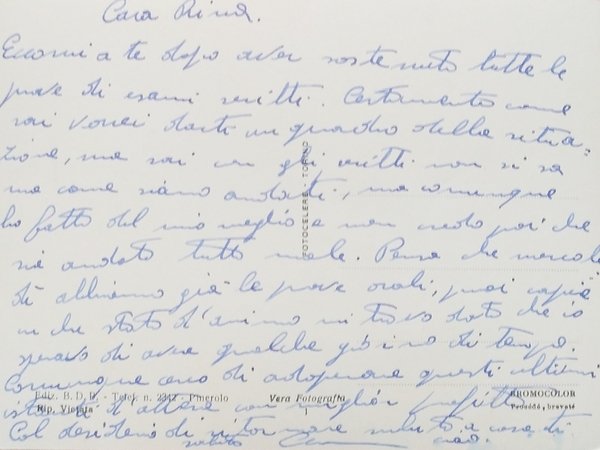 Cara Rina.
Eccomi a te dopo aver sostenuto tutte le
prove di esami scritti. Certamente come
sai vorrei darti un quadro della situa=
zione, ma sai con gli scritti non si sa
ma come siano andati, ma comunque
ho fatto del mio meglio e non credo poi che
sia andato tutto male. Pensa che mercole
dì abbiamo già le prove orali, puoi capire
in che stato d'animo mi trovo dato che io
speravo di aver qualche giorno di tempo.
Comunque cerco di adoperare questi ultimi
istanti d'attesa con miglior profitto
Col desiderio di ritornare subito a casa ti
saluto ciao.
FOTOCELERE - TORINO
Ediz. B. D. B. - Telef. n. 2342 - Pinerolo
Rip. Vietata
Vera Fotografia
BROMOCOLOR
Procédé, breveté